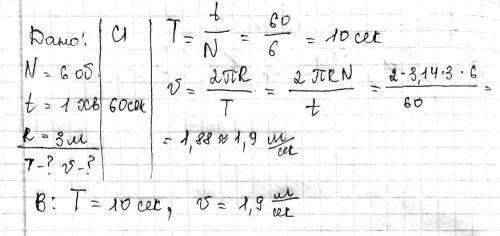 Дано: СІ
N = 6 об.
t = 1 хв 60сек
R = 3м
T-? v-?
T = t/N = 60/6 = 10 сек
v = 2πR/T = 2πRN/t = 2·3,14·3·6/60 =
= 1,88 ≈ 1,9 м/сек
В: T = 10 сек, v = 1,9 м/сек